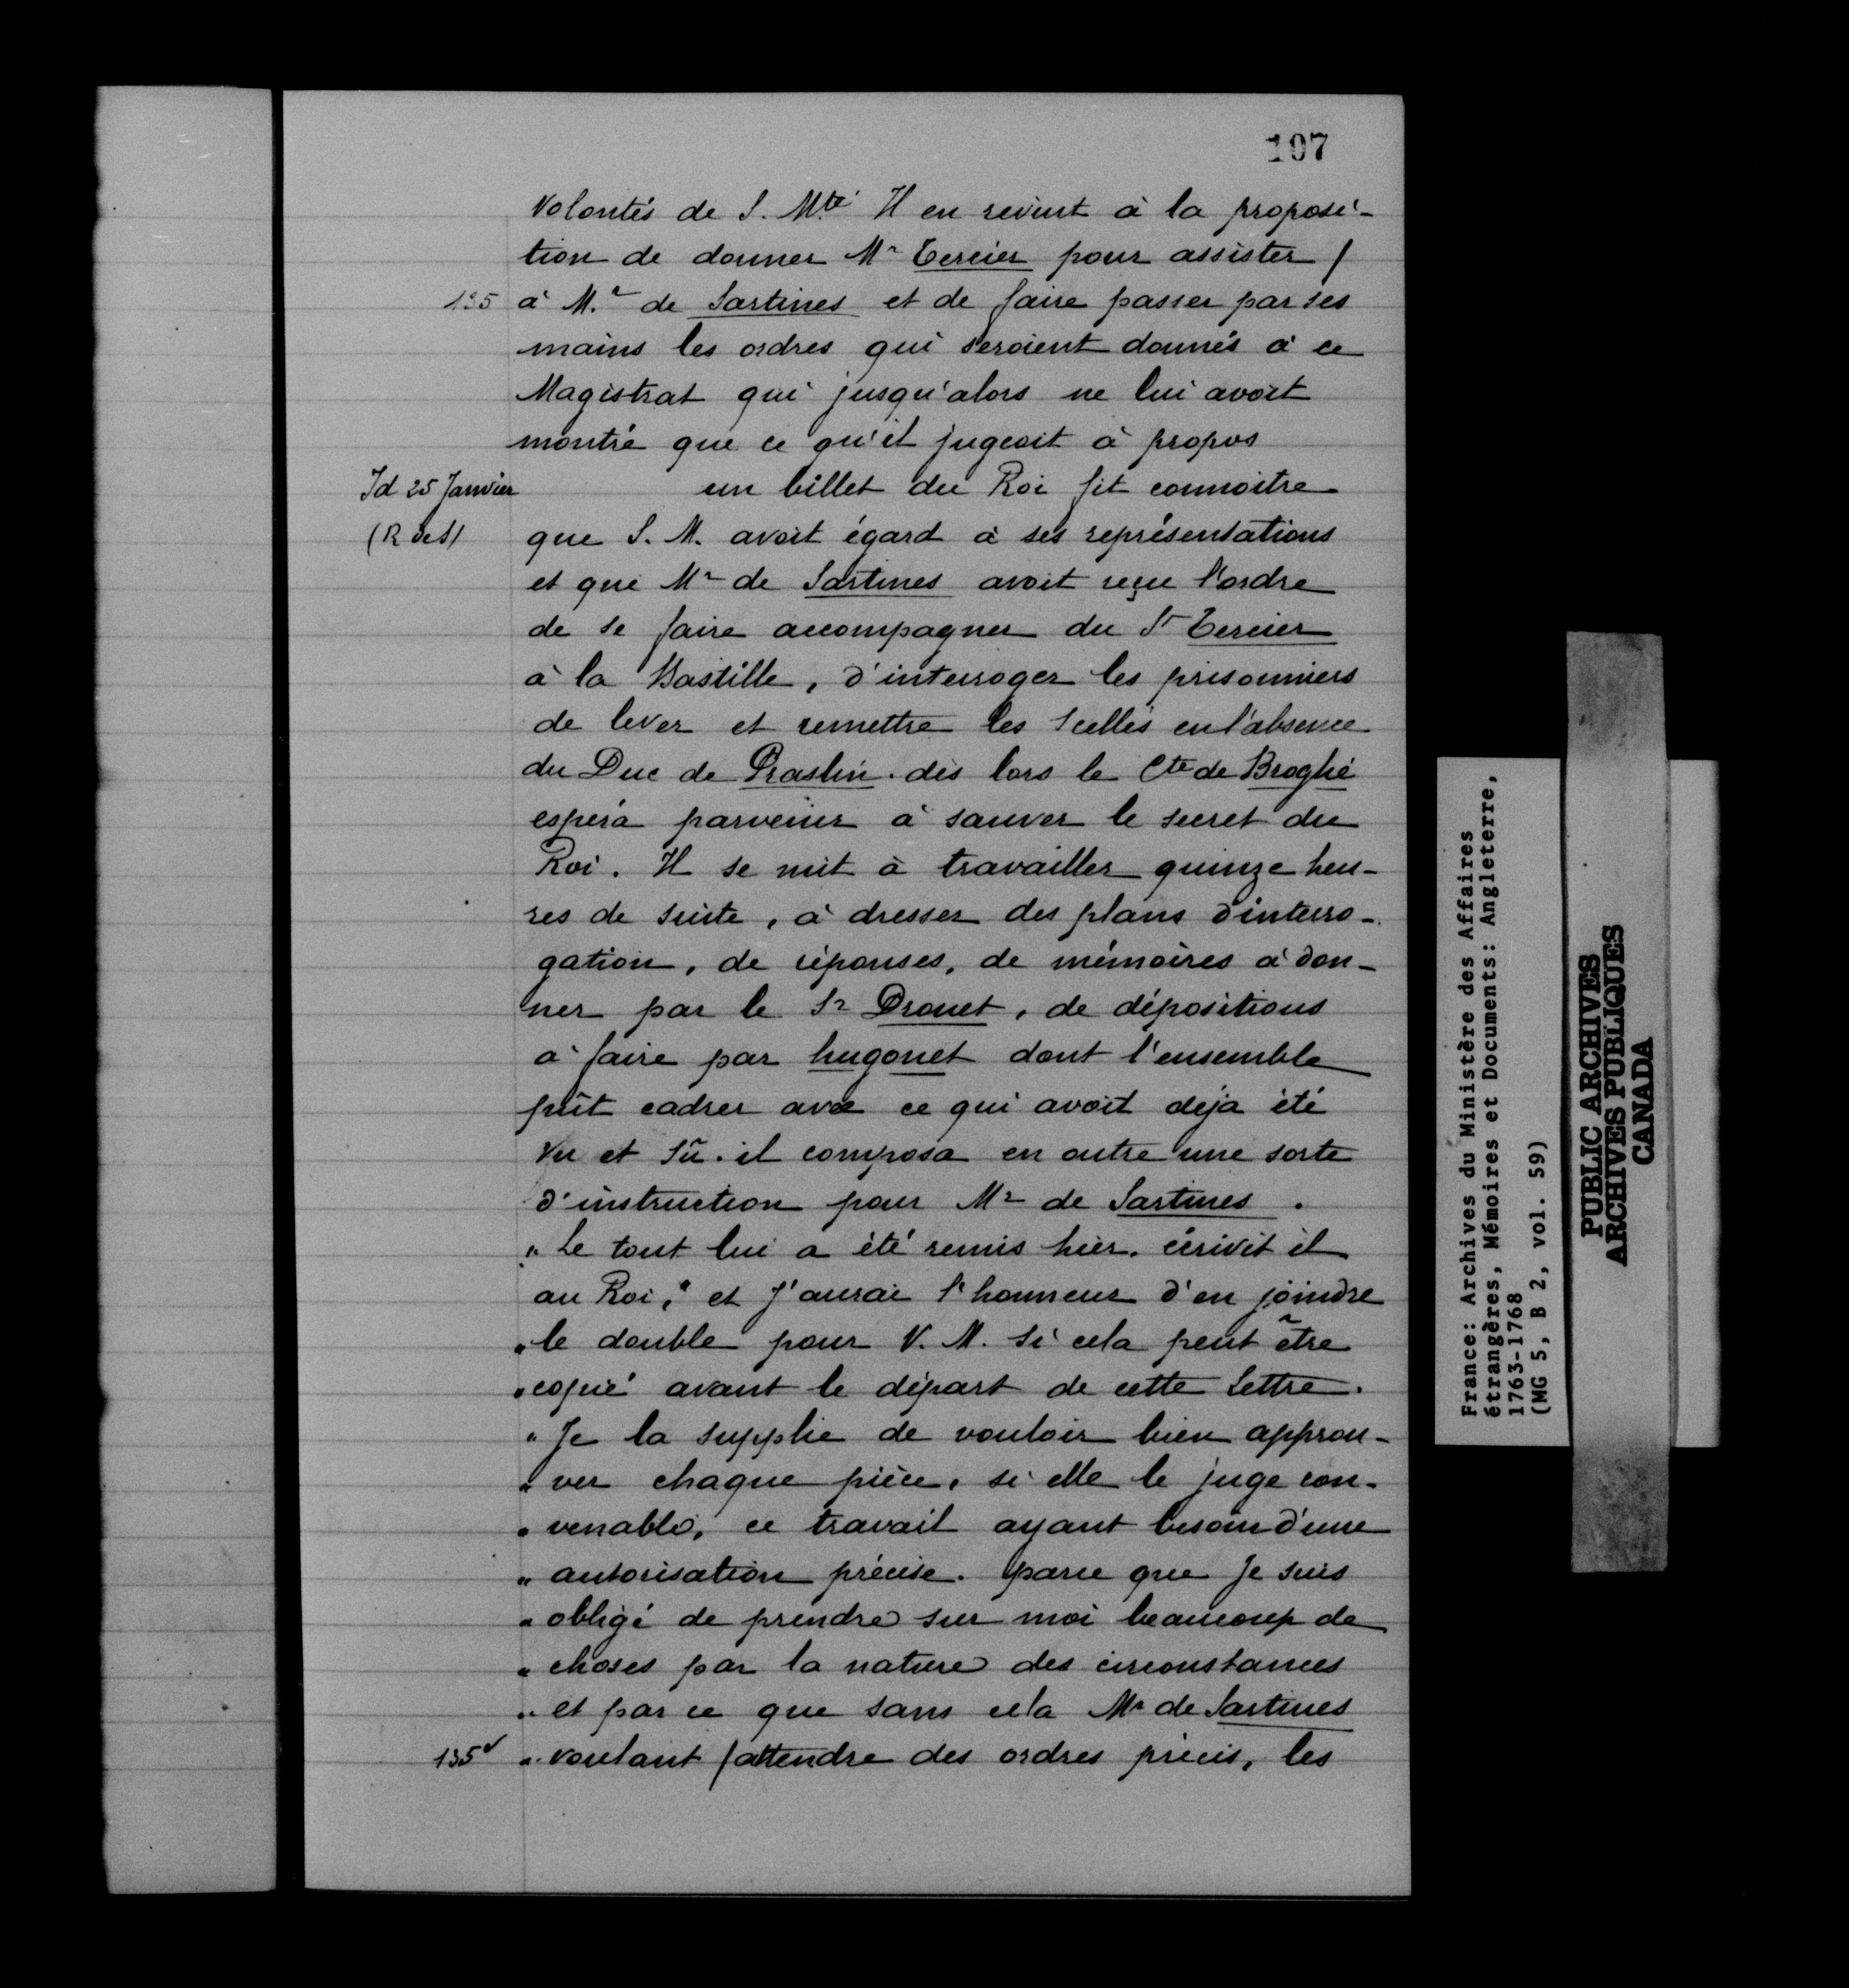 107
Volontés de S. Mté Il en revint à la proposi-
tion de donner Mr Tercier pour assister /
135 à M.r de Sartines et de faire passer par ses
mains les ordres qui seroient donnés à ce
Magistrat qui jusqu'alors ne lui avoit
montré que ce qu'il jugeoit à propos
Id 25 Janvier un billet du Roi fit connoitre
(R de S) que S. M. avoit égard à ses représentations
et que Mr de Sartines avoit reçu l'ordre
de se faire accompagner du Sr Tercier
à la Bastille, d'interroger les prisonniers
de lever et remettre les Scellés en l'absence
du Duc de Praslin. dès lors le Cte de Broglie
espéra parvenir à sauver le secret du
Roi. Il se mit à travailler quinze heu-
res de suite, à dresser des plans d'interro-
gation, de réponses, de mémoires à don-
ner par le Sr Drouet, de dépositions
à faire par hugonet dont l'ensemble
pût cadrer avec ce qui avoit déja été
Vu et Sû. il composa en outre une sorte
d'instruction pour Mr de Sartines.
" Le tout lui a été remis hier. écrivit il
au Roi, " et J'aurai l'honneur d'en joindre
" le double pour V. M. si cela peut être
" copié avant le départ de cette Lettre.
" Je la supplie de vouloir bien approu-
" ver chaque pièce, si elle le juge con-
" venable, ce travail ayant besoin d'une
" autorisation précise. parce que Je suis
" obligé de prendre sur moi beaucoup de
" choses par la nature des circonstances
" et par ce que sans cela Mr de Sartines
135v " voulant / attendre des ordres précis, les
France: Archives du Ministère des Affaires
étrangères, Mémoires et Documents: Angleterre,
1763-1768
(MG 5, B 2, vol. 59)
PUBLIC ARCHIVES
ARCHIVES PUBLIQUES
CANADA